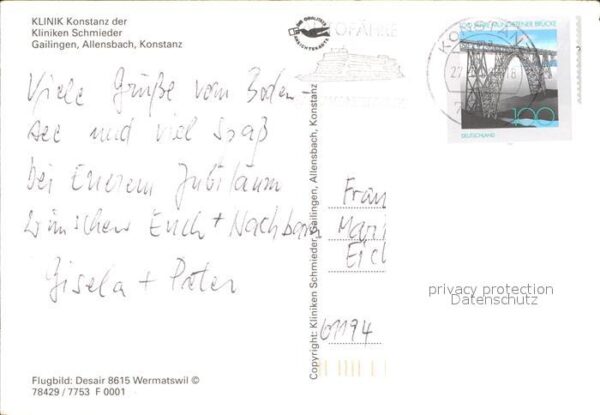 KLINIK Konstanz der
Kliniken Schmieder
Gailingen, Allensbach, Konstanz
Viele Grüße vom Boden-
see und viel Spaß
bei Euerem Jubiläum
wünschen Euch + Nachbarn
Gisela + Peter
Flugbild: Desair 8615 Wermatswil ©
78429 / 7753 F 0001
Copyright: Kliniken Schmieder, Gailingen, Allensbach, Konstanz
100 JAHRE MÜNGSTENER BRÜCKE
100
DEUTSCHLAND
KONSTANZ
Mari
Eich
61194
privacy protection
Datenschutz